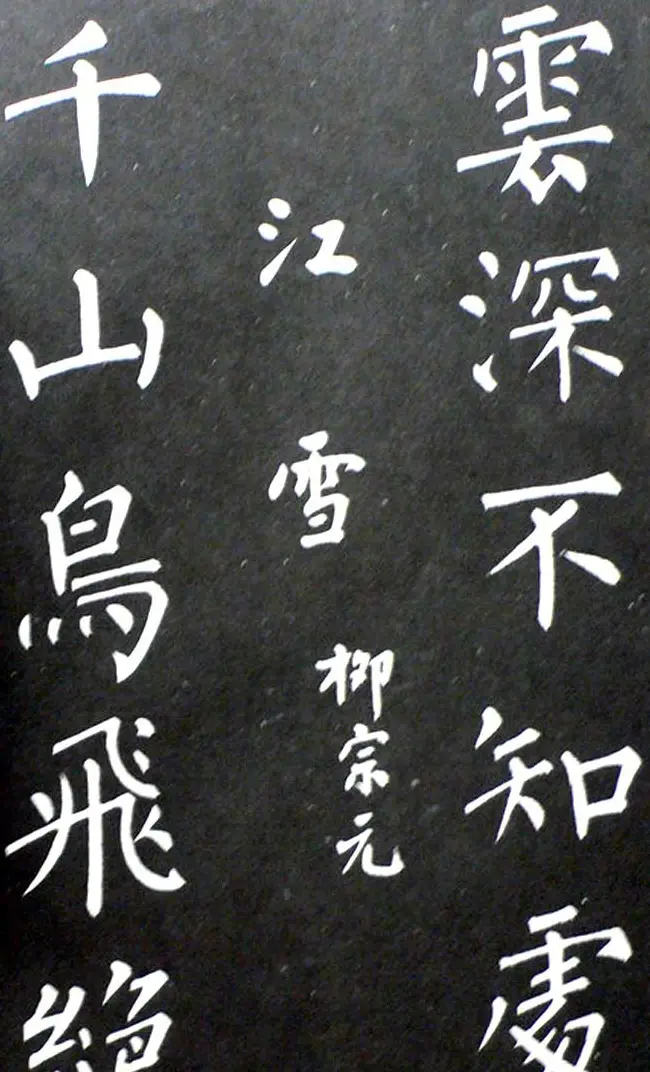 雲深不知處
江雪 柳宗元
千山鳥飛絕